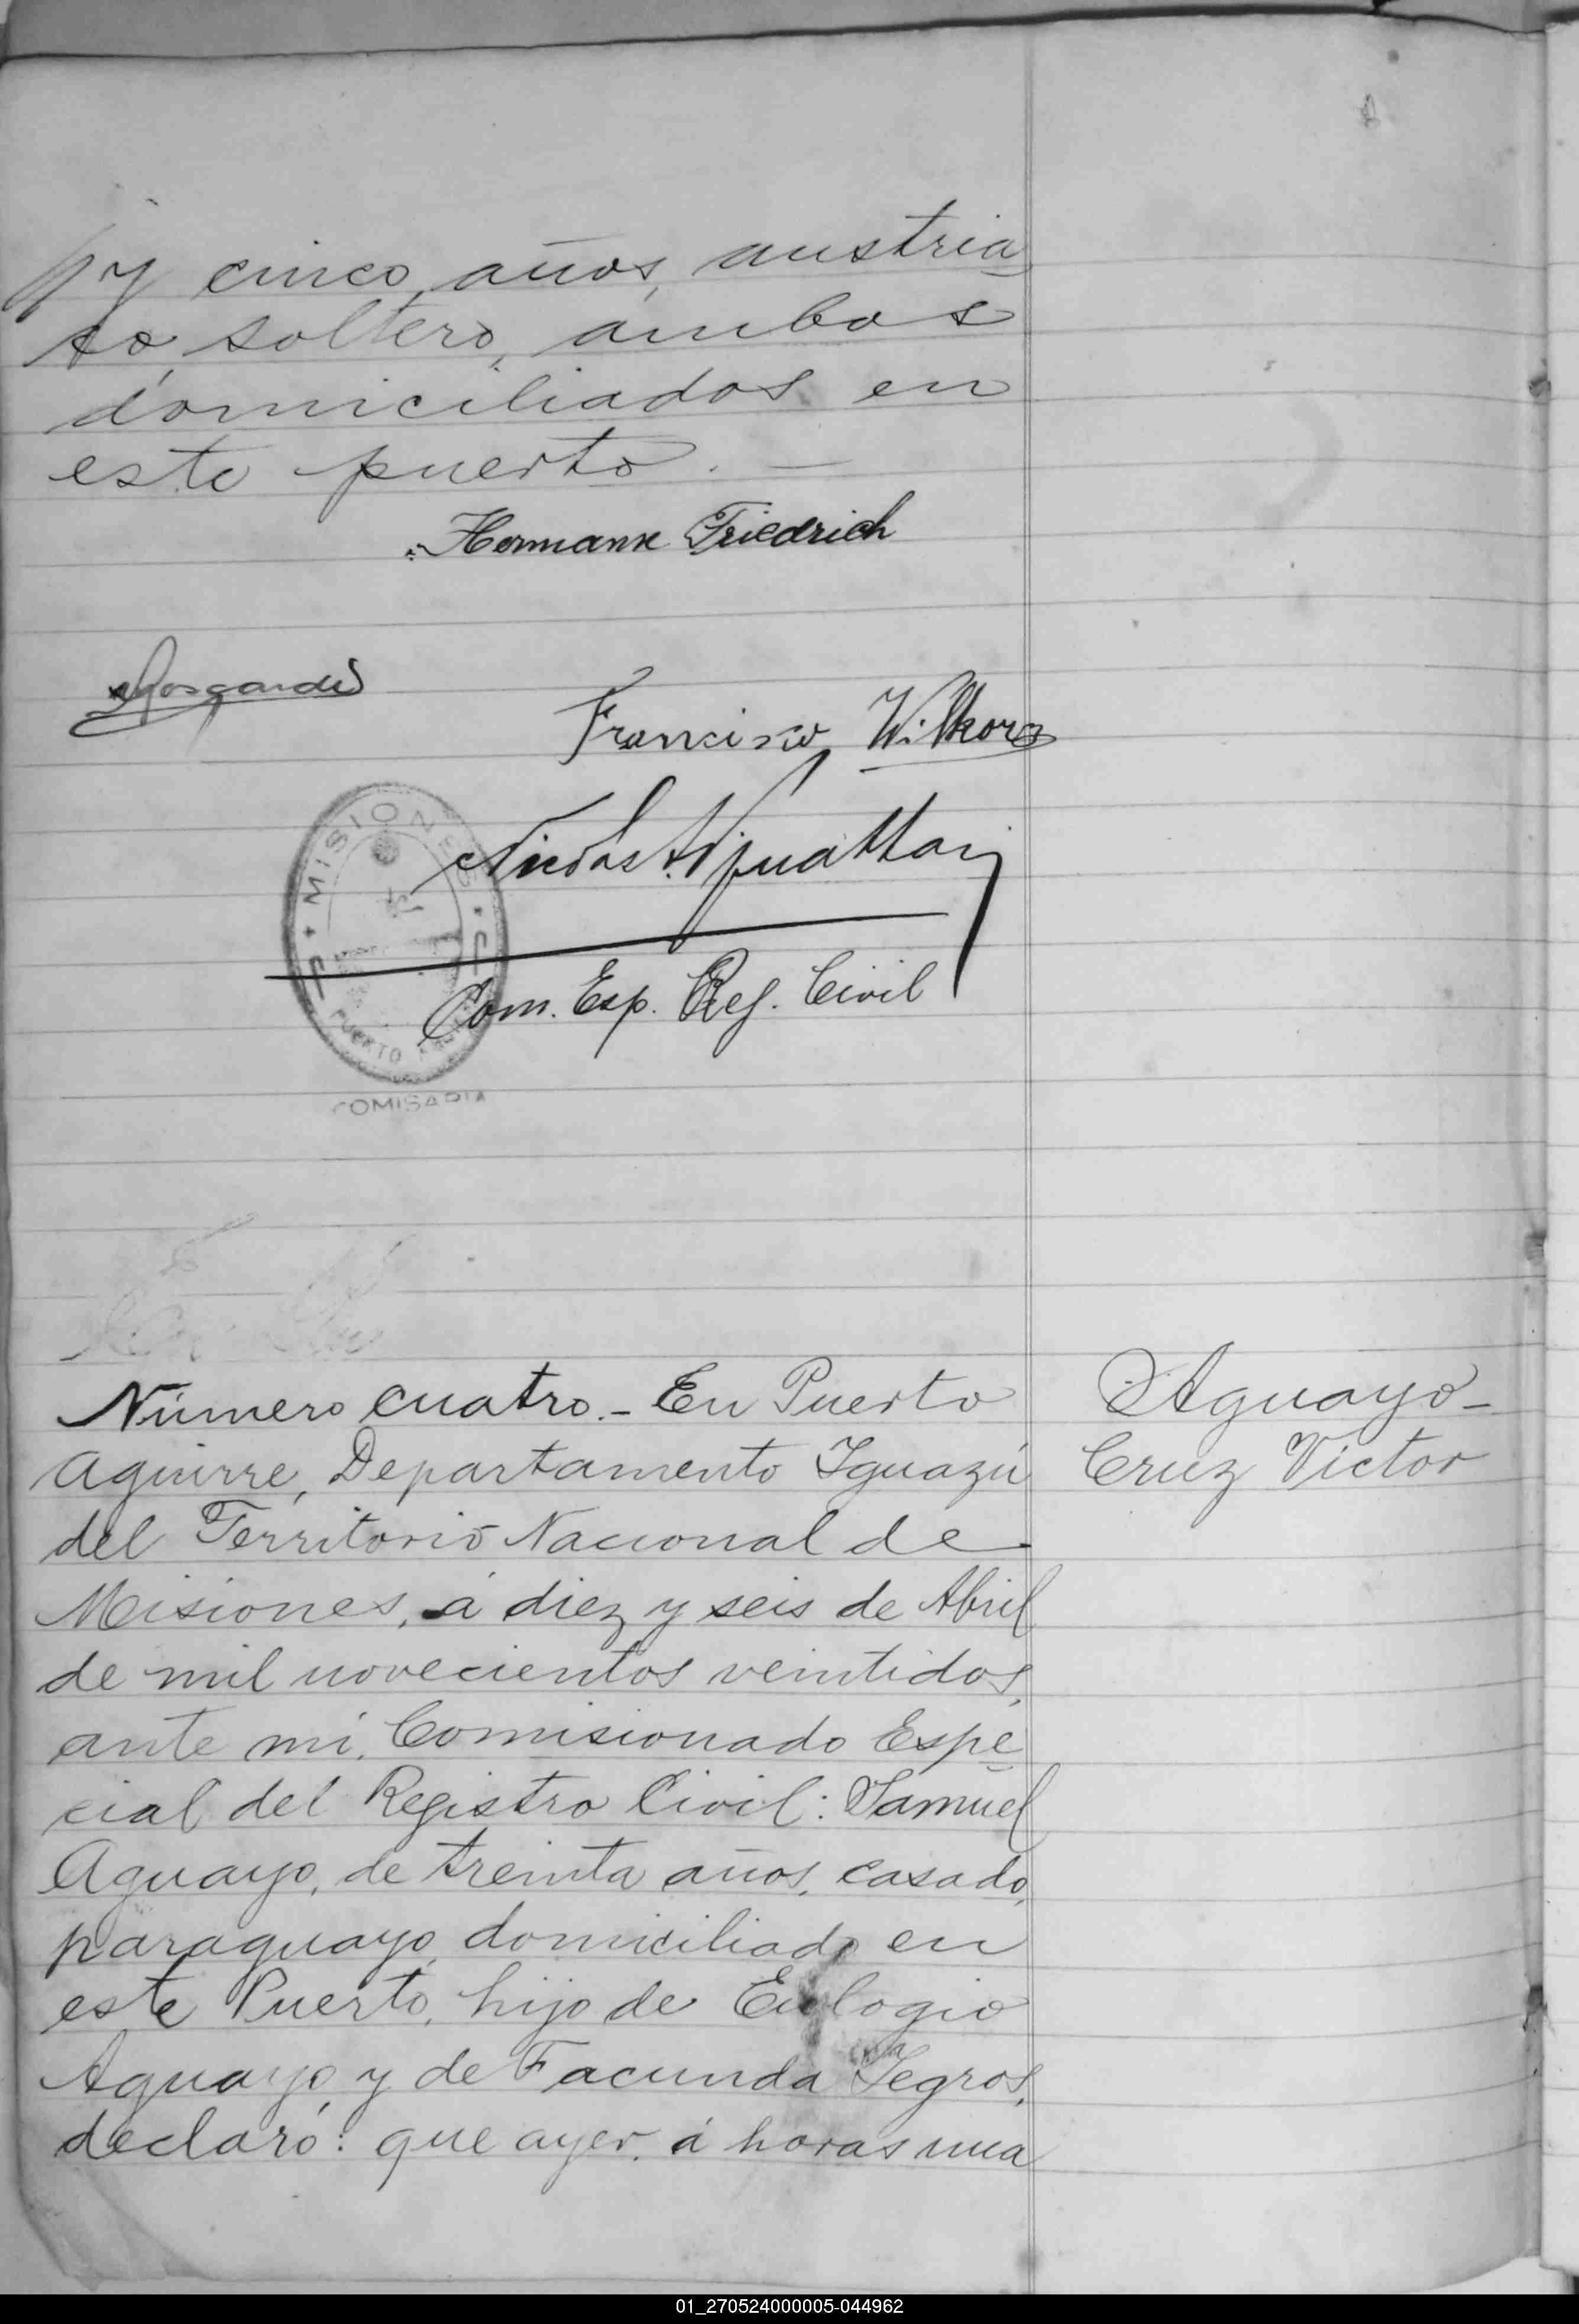 y cinco años, austria
co, soltero, ambos
domiciliados en
este puerto. —
Hermann Friedrich
Francisco Wilkorz
MISIONES
PUERTO
COMISARIA
Com. Esp. Reg. Civil
Número cuatro.- En Puerto
Aguirre, Departamento Iguazú
del Territorio Nacional de
Misiones, á diez y seis de Abril
de mil novecientos veintidos,
ante mí, Comisionado Espe
cial del Registro Civil: Samuel
Aguayo, de treinta años, casado,
paraguayo, domiciliado en
este Puerto, hijo de Eulogio
Aguayo y de Facunda Segros,
declaró: que ayer, á horas una
Aguayo-
Cruz Víctor
01_270524000005-044962